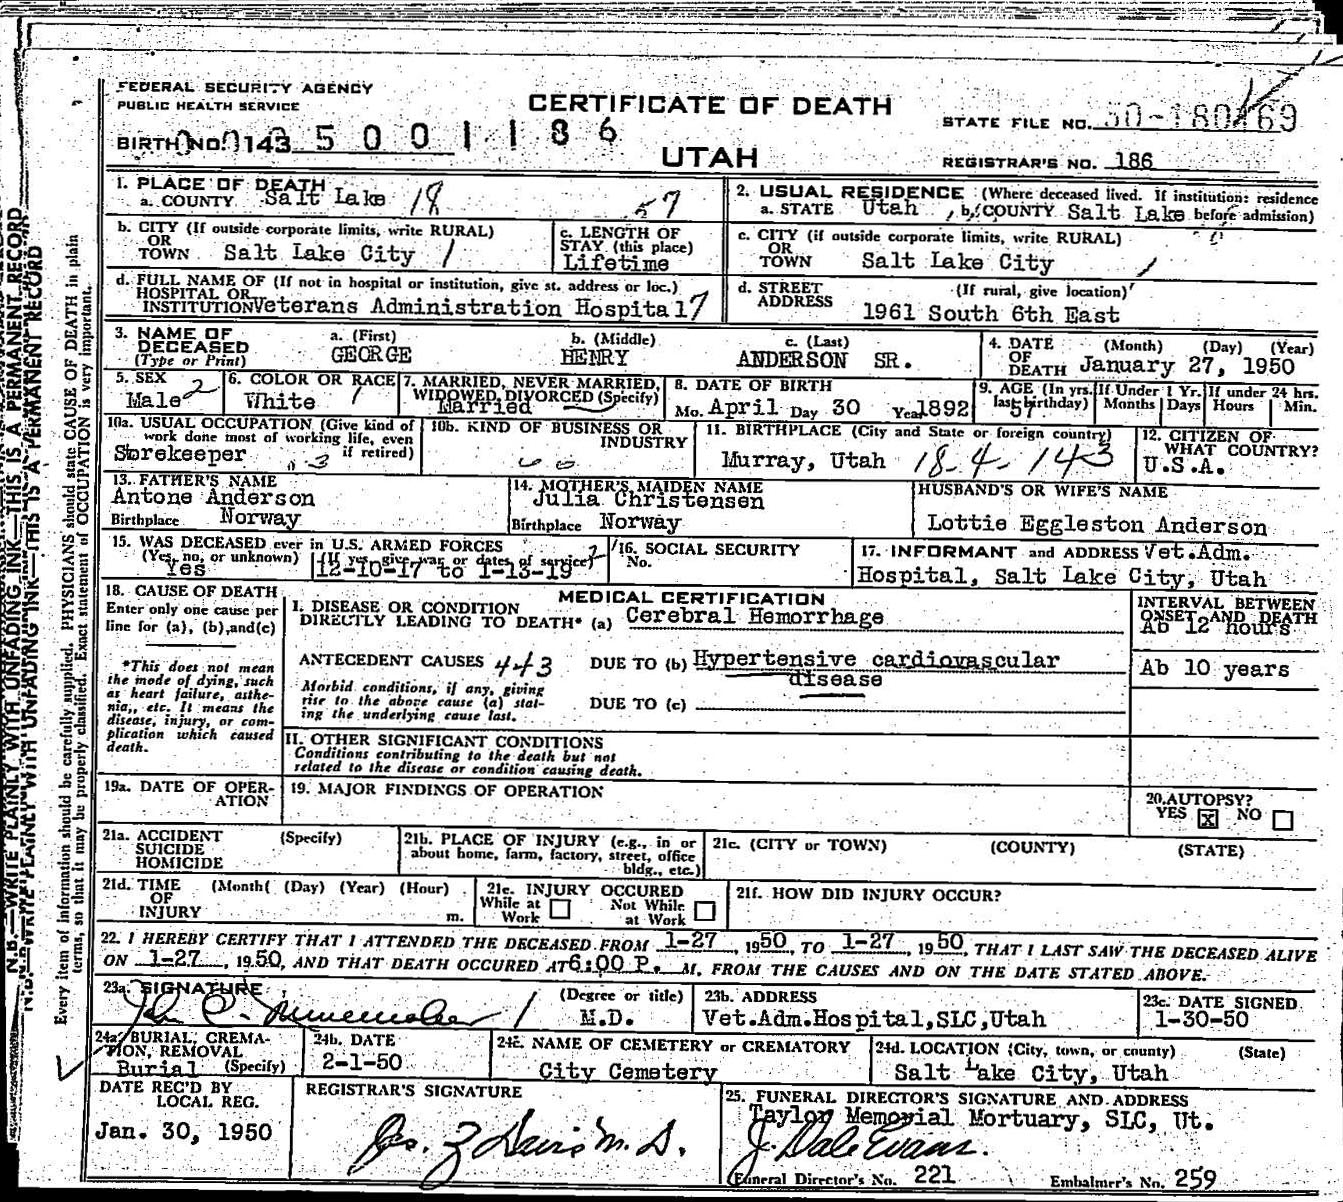 FEDERAL SECURITY AGENCY
PUBLIC HEALTH SERVICE
CERTIFICATE OF DEATH
STATE FILE NO. 50-180169
BIRTH NO. 143 5001186
UTAH
REGISTRAR'S NO. 186
1. PLACE OF DEATH
a. COUNTY Salt Lake 18 57
2. USUAL RESIDENCE (Where deceased lived. If institution: residence
a. STATE Utah , b. COUNTY Salt Lake before admission)
b. CITY (If outside corporate limits, write RURAL)
OR
TOWN Salt Lake City 1
c. LENGTH OF
STAY (this place)
Lifetime
c. CITY (if outside corporate limits, write RURAL)
OR
TOWN Salt Lake City
d. FULL NAME OF (If not in hospital or institution, give st. address or loc.)
HOSPITAL OR
INSTITUTION Veterans Administration Hospital 7
d. STREET (If rural, give location)
ADDRESS 1961 South 6th East
3. NAME OF
DECEASED
(Type or Print)
a. (First)
GEORGE
b. (Middle)
HENRY
c. (Last)
ANDERSON SR.
4. DATE (Month) (Day) (Year)
OF
DEATH January 27, 1950
5. SEX 2
Male
6. COLOR OR RACE
White 1
7. MARRIED, NEVER MARRIED,
WIDOWED, DIVORCED (Specify)
Married
8. DATE OF BIRTH
Mo. April Day 30 Year 1892
9. AGE (In yrs. last birthday)
57
If Under 1 Yr.
Months Days
If under 24 hrs.
Hours Min.
10a. USUAL OCCUPATION (Give kind of
work done most of working life, even
if retired)
Storekeeper
10b. KIND OF BUSINESS OR
INDUSTRY
11. BIRTHPLACE (City and State or foreign country)
Murray, Utah 18-4-143
12. CITIZEN OF
WHAT COUNTRY?
U.S.A.
13. FATHER'S NAME
Antone Anderson
Birthplace Norway
14. MOTHER'S MAIDEN NAME
Julia Christensen
Birthplace Norway
HUSBAND'S OR WIFE'S NAME
Lottie Eggleston Anderson
15. WAS DECEASED ever in U.S. ARMED FORCES
(Yes, no, or unknown) (If yes, give war or dates of service) 2
Yes 12-10-17 to 1-13-19
16. SOCIAL SECURITY
No.
17. INFORMANT and ADDRESS Vet.Adm.
Hospital, Salt Lake City, Utah
18. CAUSE OF DEATH
Enter only one cause per
line for (a), (b), and (c)
*This does not mean
the mode of dying, such
as heart failure, asthe-
nia,, etc. It means the
disease, injury, or com-
plication which caused
death.
MEDICAL CERTIFICATION
I. DISEASE OR CONDITION
DIRECTLY LEADING TO DEATH* (a) Cerebral Hemorrhage
INTERVAL BETWEEN
ONSET AND DEATH
Ab 12 hours
ANTECEDENT CAUSES 443 DUE TO (b) Hypertensive cardiovascular
disease
Ab 10 years
Morbid conditions, if any, giving
rise to the above cause (a) stat-
ing the underlying cause last.
DUE TO (c)
II. OTHER SIGNIFICANT CONDITIONS
Conditions contributing to the death but not
related to the disease or condition causing death.
19a. DATE OF OPER-
ATION
19. MAJOR FINDINGS OF OPERATION
20. AUTOPSY?
YES X NO
21a. ACCIDENT (Specify)
SUICIDE
HOMICIDE
21b. PLACE OF INJURY (e.g., in or
about home, farm, factory, street, office
bldg., etc.)
21c. (CITY or TOWN) (COUNTY) (STATE)
21d. TIME (Month) (Day) (Year) (Hour)
OF
INJURY m.
21e. INJURY OCCURED
While at Work
Not While at Work
21f. HOW DID INJURY OCCUR?
22. I HEREBY CERTIFY THAT I ATTENDED THE DECEASED FROM 1-27, 1950, TO 1-27, 1950, THAT I LAST SAW THE DECEASED ALIVE
ON 1-27, 1950, AND THAT DEATH OCCURED AT 6:00 P. M, FROM THE CAUSES AND ON THE DATE STATED ABOVE.
23a. SIGNATURE (Degree or title)
John C. M.D.
23b. ADDRESS
Vet.Adm.Hospital,SLC,Utah
23c. DATE SIGNED
1-30-50
24a. BURIAL, CREMA-
TION, REMOVAL
Burial (Specify)
24b. DATE
2-1-50
24c. NAME OF CEMETERY or CREMATORY
City Cemetery
24d. LOCATION (City, town, or county) (State)
Salt Lake City, Utah
DATE REC'D BY
LOCAL REG.
Jan. 30, 1950
REGISTRAR'S SIGNATURE
Jas. Z Davis M.D.
25. FUNERAL DIRECTOR'S SIGNATURE AND ADDRESS
Taylor Memorial Mortuary, SLC, Ut.
J. Dale Evans.
Funeral Director's No. 221 Embalmer's No. 259
N.B.—WRITE PLAINLY WITH UNFADING INK—THIS IS A PERMANENT RECORD
N.B.—WRITE PLAINLY WITH UNFADING INK—THIS IS A PERMANENT RECORD
Every item of information should be carefully supplied. PHYSICIANS should state CAUSE OF DEATH in plain
terms, so that it may be properly classified. Exact statement of OCCUPATION is very important.